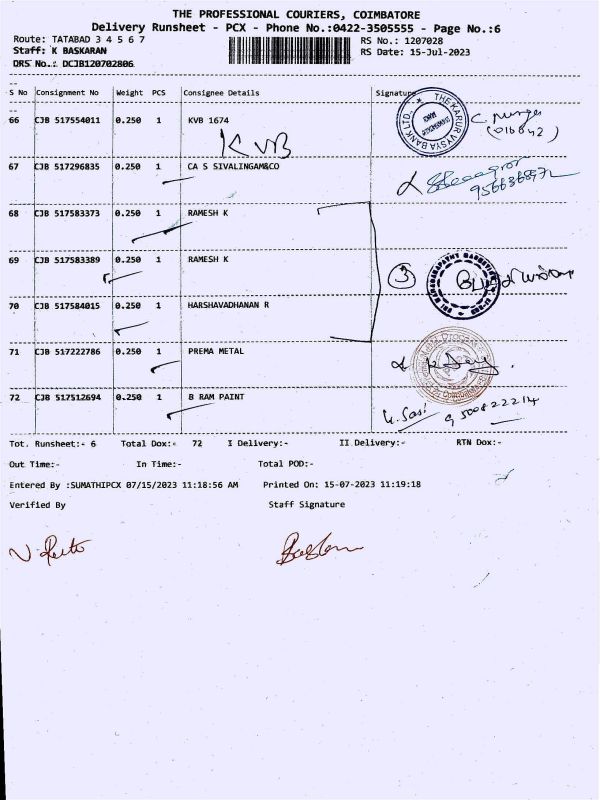 THE PROFESSIONAL COURIERS, COIMBATORE
Delivery Runsheet - PCX - Phone No.:0422-3505555 - Page No.:6
Route: TATABAD 3 4 5 6 7
RS No.: 1207028
Staff: K BASKARAN
RS Date: 15-Jul-2023
DRS No.: DCJB120702806
S No Consignment No Weight PCS Consignee Details Signature
66 CJB 517554011 0.250 1 KVB 1674
KVB
(016842)
THE KARUR VYSYA BANK LTD.
67 CJB 517296835 0.250 1 CA S SIVALINGAM&CO
68 CJB 517583373 0.250 1 RAMESH K
69 CJB 517583389 0.250 1 RAMESH K
3
70 CJB 517584015 0.250 1 HARSHAVADHANAN R
71 CJB 517222786 0.250 1 PREMA METAL
72 CJB 517512694 0.250 1 B RAM PAINT
K. Sasi 9500822214
Tot. Runsheet:- 6 Total Dox:- 72 I Delivery:- II Delivery:- RTN Dox:-
Out Time:- In Time:- Total POD:-
Entered By :SUMATHIPCX 07/15/2023 11:18:56 AM Printed On: 15-07-2023 11:19:18
Verified By Staff Signature